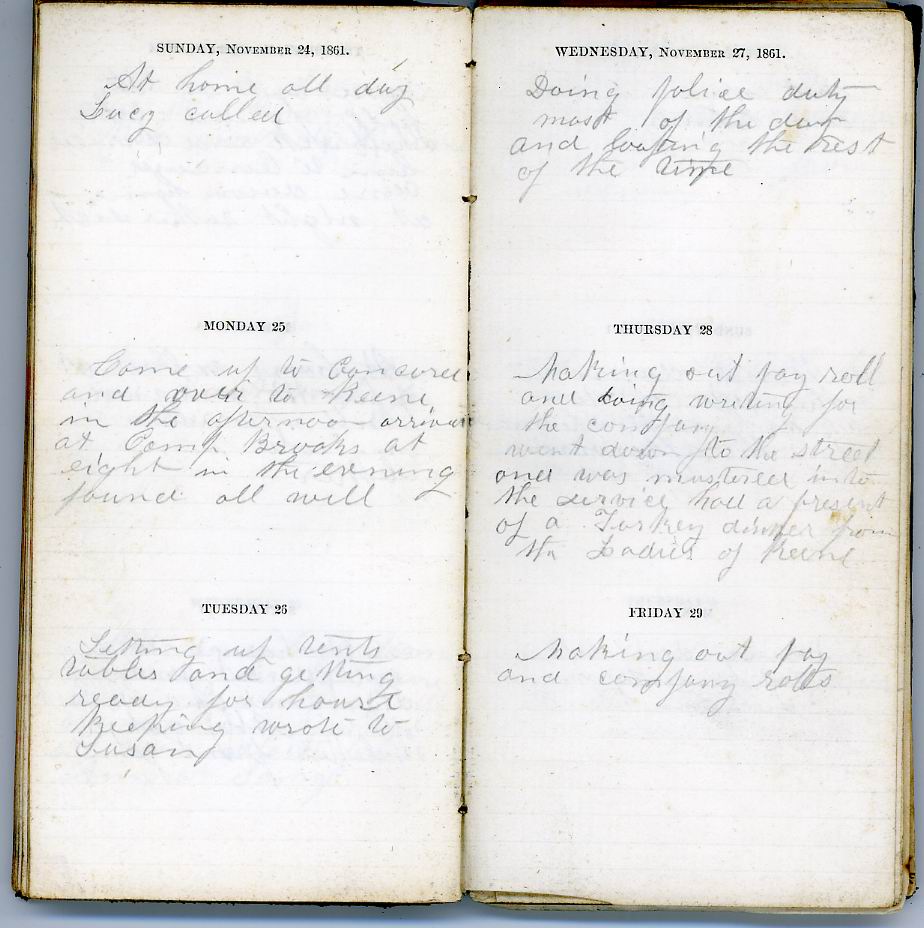 SUNDAY, NOVEMBER 24, 1861.
At home all day
Lucy called
MONDAY 25
Come up to Concord
and over to Keene
in the afternoon arrived
at Camp Brooks at
eight in the evening
found all well
TUESDAY 26
Setting up tents
tables and getting
ready for house
keeping wrote to
Susan
WEDNESDAY, NOVEMBER 27, 1861.
Doing police duty
most of the day
and loafing the rest
of the time
THURSDAY 28
Making out pay roll
and doing writing for
the company
went down to the street
and was mustered into
the service had a present
of a Turkey dinner from
the Ladies of Keene
FRIDAY 29
Making out pay
and company rolls